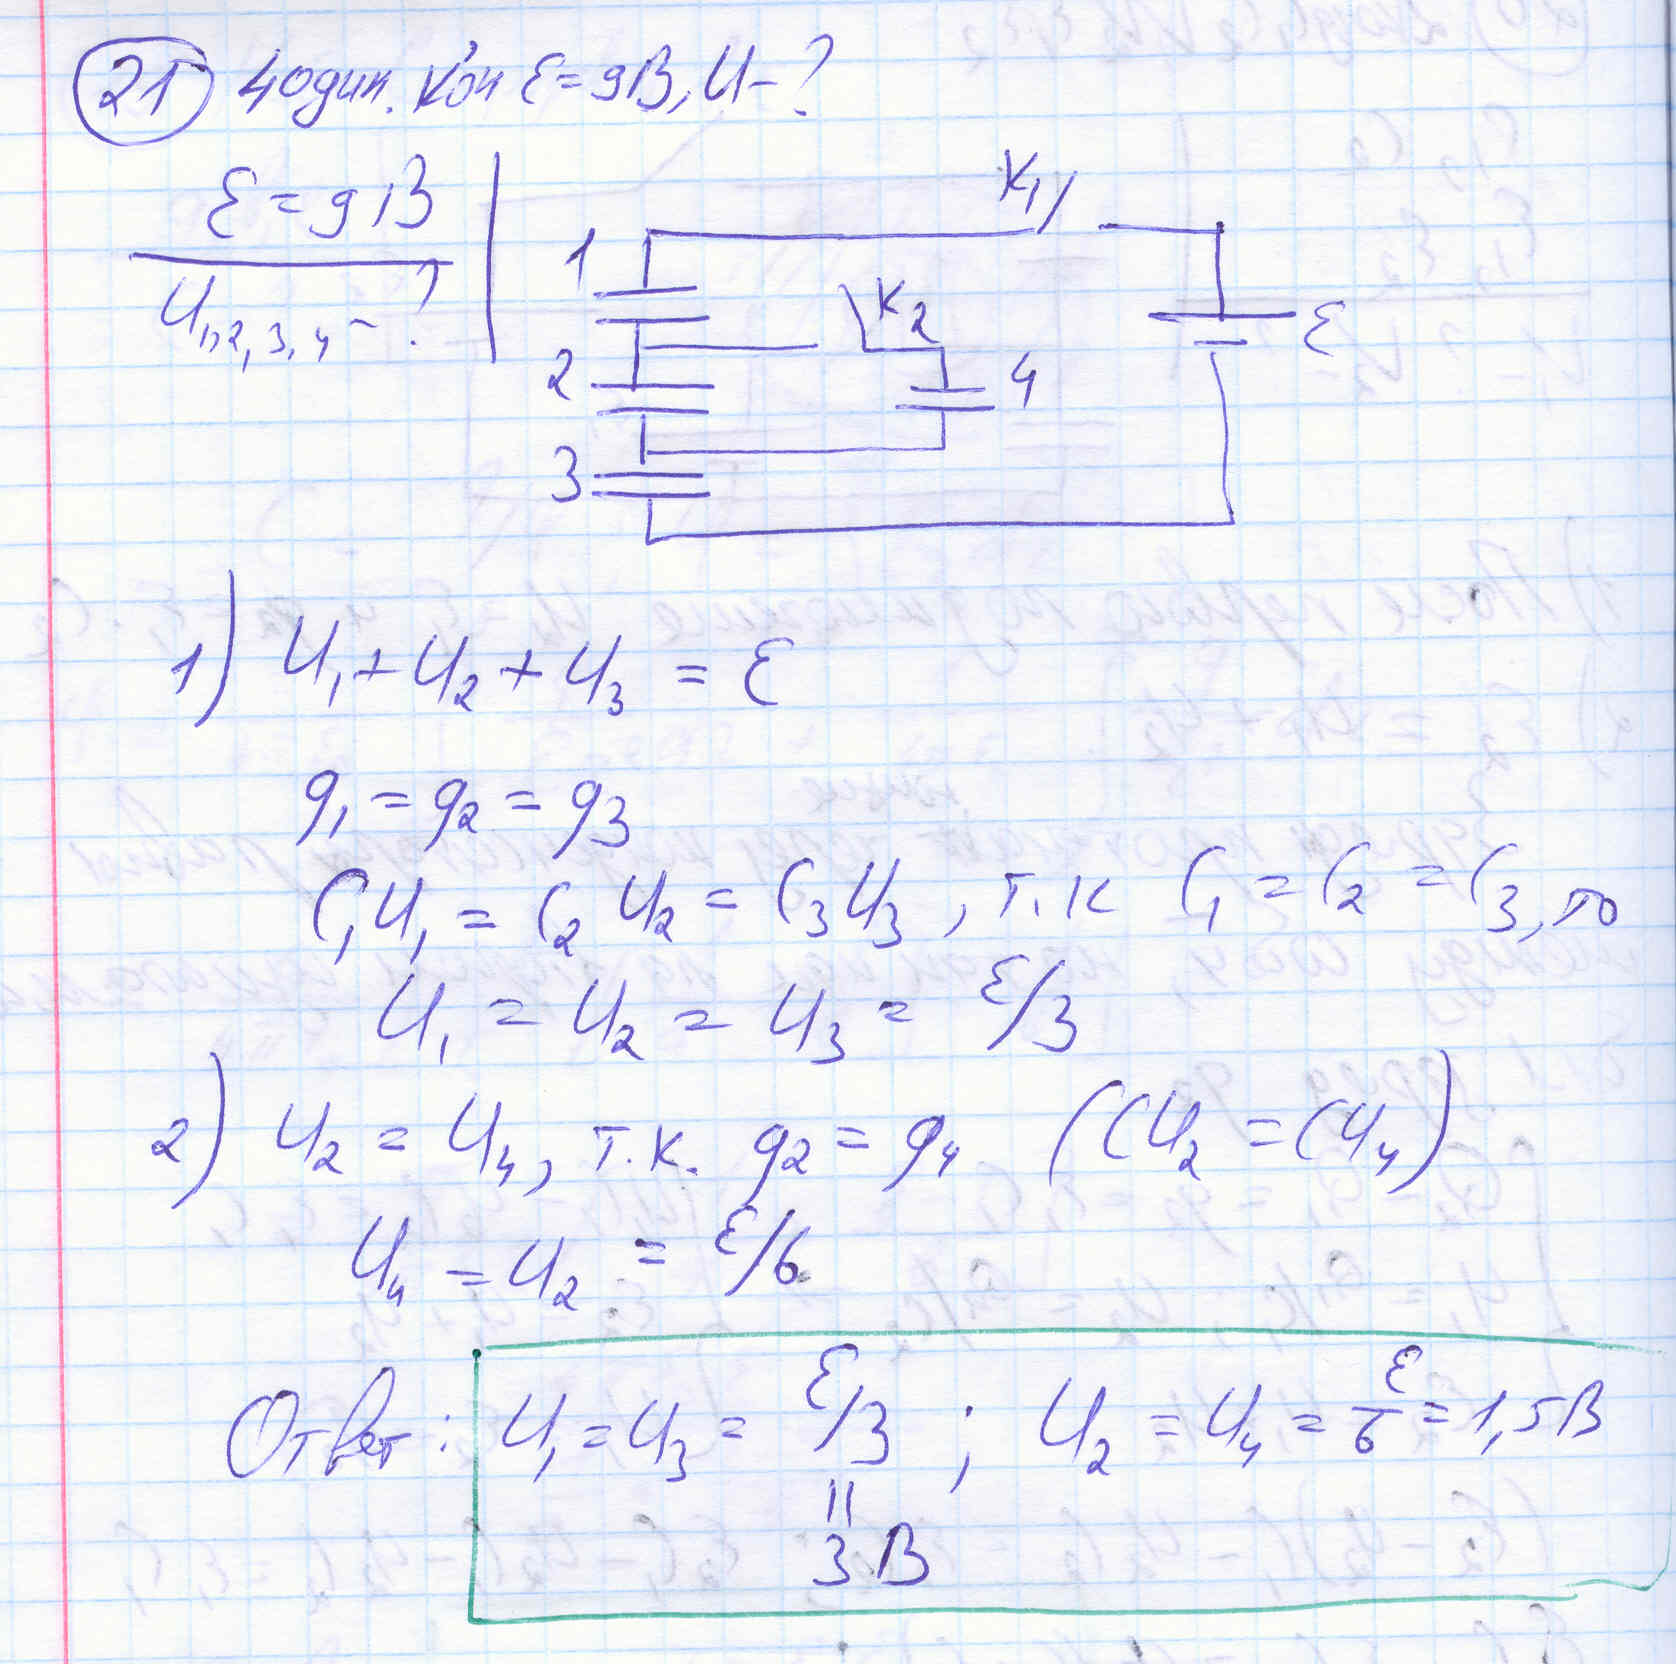 21 4 один. кон ε = 9В, U - ?
ε = 9В
U1,2,3,4 - ?
K1
1
K2
ε
2
4
3
1) U1 + U2 + U3 = ε
q1 = q2 = q3
C1U1 = C2U2 = C3U3, т.к C1 = C2 = C3, то
U1 = U2 = U3 = ε/3
2) U2 = U4, т.к. q2 = q4 (CU2 = CU4)
U4 = U2 = ε/6
Ответ: U1 = U3 = ε/3 ; U2 = U4 = ε/6 = 1,5В
=
3В